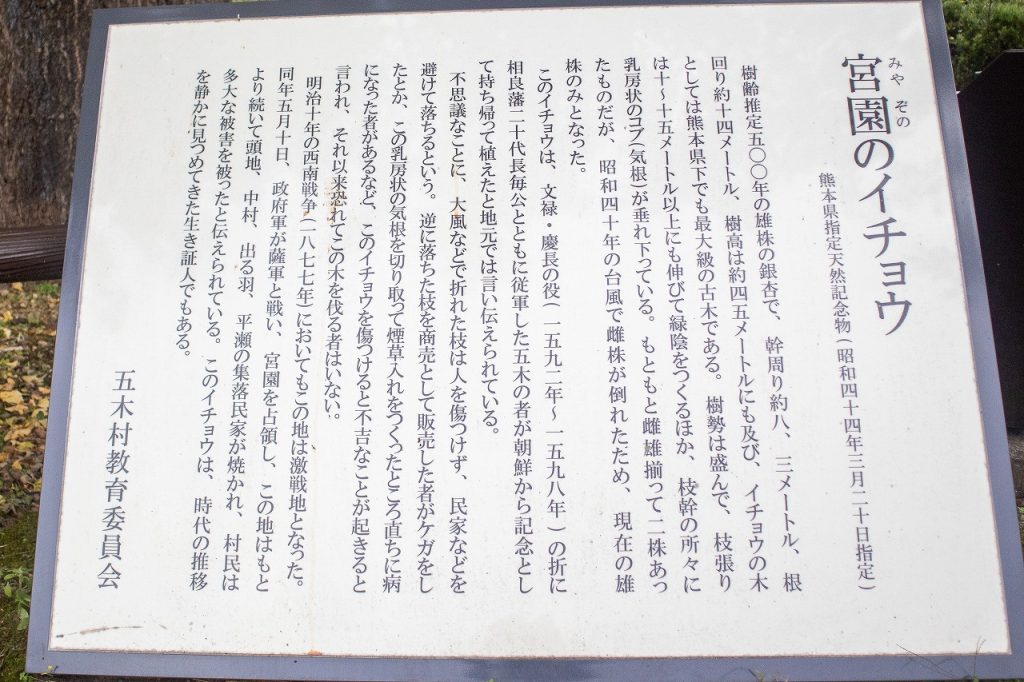 みや ぞの
宮園のイチョウ
熊本県指定天然記念物(昭和四十四年三月二十日指定)
樹齢推定五〇〇年の雄株の銀杏で、幹周り約八、三メートル、根
回り約十四メートル、樹高は約四五メートルにも及び、イチョウの木
としては熊本県下でも最大級の古木である。樹勢は盛んで、枝張り
は十〜十五メートル以上にも伸びて緑陰をつくるほか、枝幹の所々に
乳房状のコブ(気根)が垂れ下っている。もともと雌雄揃って二株あっ
たものだが、昭和四十年の台風で雌株が倒れたため、現在の雄
株のみとなった。
このイチョウは、文禄・慶長の役(一五九二年〜一五九八年)の折に
相良藩二十代長毎公とともに従軍した五木の者が朝鮮から記念とし
て持ち帰って植えたと地元では言い伝えられている。
不思議なことに、大風などで折れた枝は人を傷つけず、民家などを
避けて落ちるという。逆に落ちた枝を商売として販売した者がケガをし
たとか、この乳房状の気根を切り取って煙草入れをつくったところ直ちに病
になった者があるなど、このイチョウを傷つけると不吉なことが起きると
言われ、それ以来恐れてこの木を伐る者はいない。
明治十年の西南戦争(一八七七年)においてもこの地は激戦地となった。
同年五月十日、政府軍が薩軍と戦い、宮園を占領し、この地はもと
より続いて頭地、中村、出る羽、平瀬の集落民家が焼かれ、村民は
多大な被害を被ったと伝えられている。このイチョウは、時代の推移
を静かに見つめてきた生き証人でもある。
五木村教育委員会